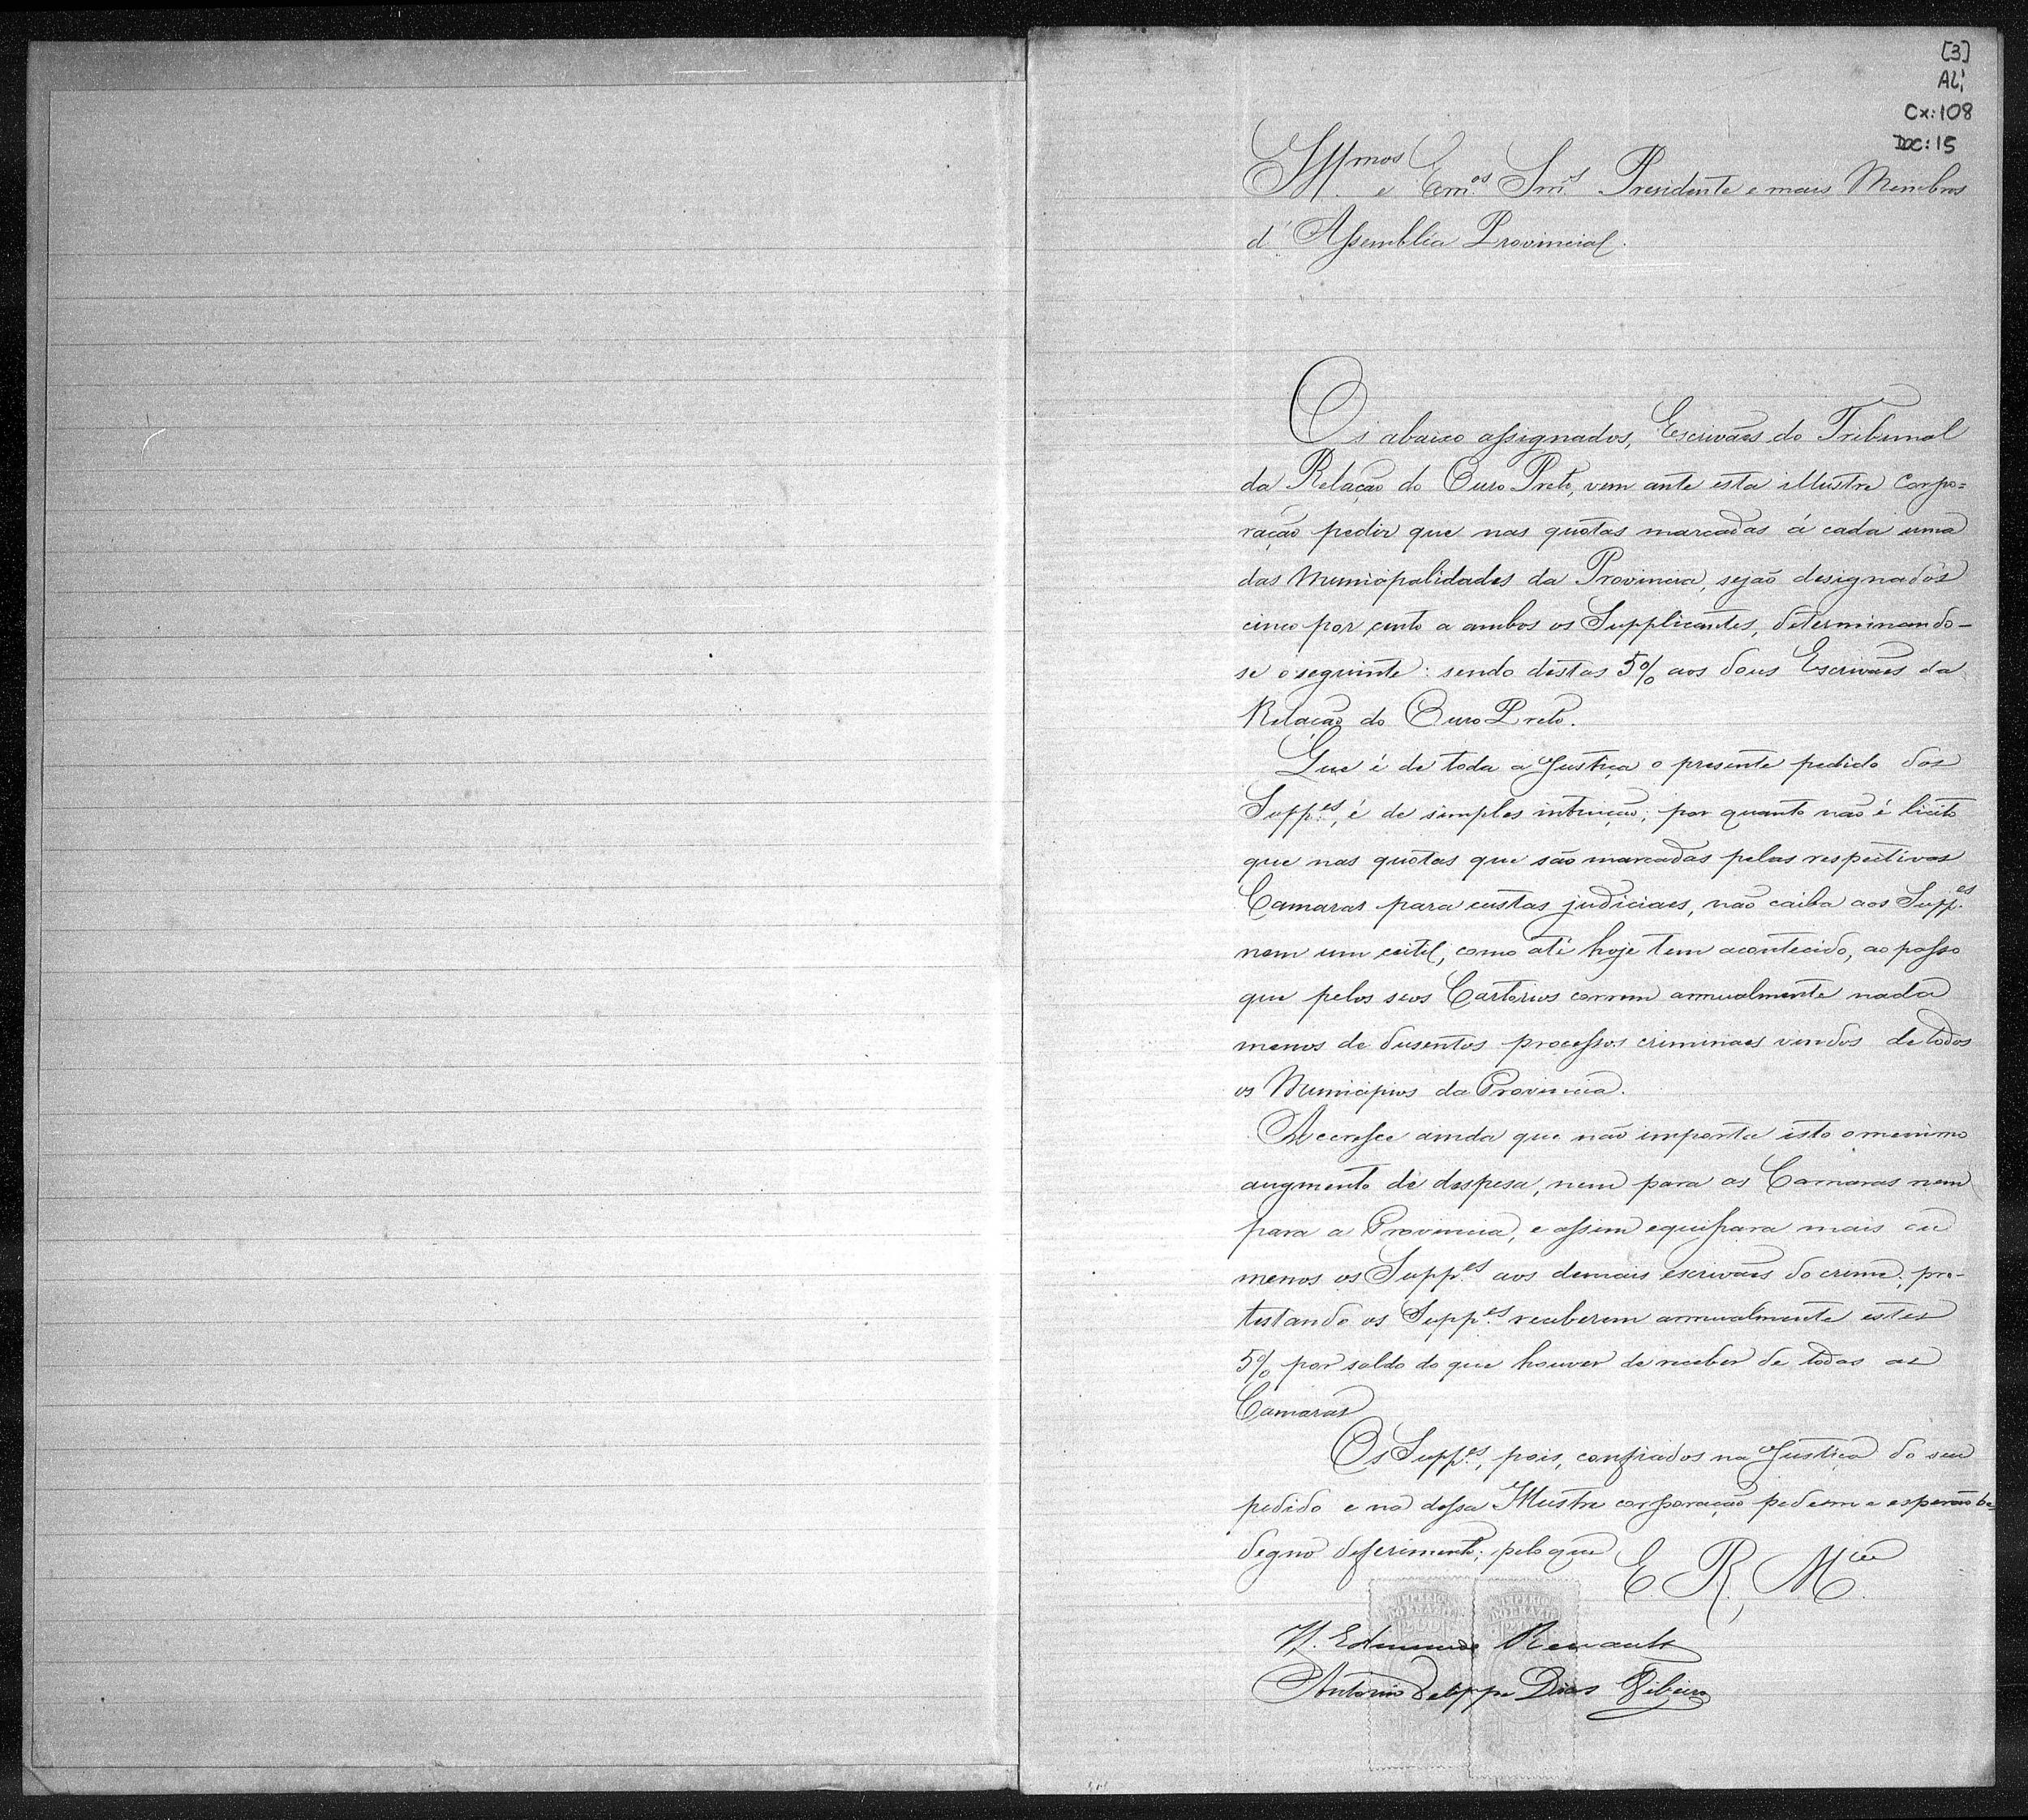 [3]
ALi
Cx: 108
DOC: 15
Illmos e Exmos Snrs Presidente e mais Membros
d'Assemblêa Provincial.
Os abaixo assignados, Escrivães do Tribunal
da Relação do Ouro Preto, vem ante esta illustre Corpo=
ração pedir que nas quotas marcadas á cada uma
das Municipalidades da Provincia, sejão designados
cinco por cento a ambos os Supplicantes, determinando-
se o seguinte: sendo destas 5% aos dous Escrivães da
Relação do Ouro Preto.
Que é de toda a Justiça o presente pedido dos
Suppes, é de simples intuição; por quanto não é licito
que nas quotas que são marcadas pelas respectivas
Camaras para custas judiciaes, não caiba aos Suppes
nem um ceitil, como até hoje tem acontecido, ao passo
que pelos seos Cartorios correm annualmente nada
menos de dusentos processos criminaes vindos de todos
os Municipios da Provincia.
Accresce ainda que não importa isto o menimo
augmento de despesa, nem para as Camaras nem
para a Provincia, e assim equipara mais ou
menos os Suppes aos demais escrivães do crime; pro-
testando os Suppes receberem annualmente estes
5% por saldo do que houver de receber de todas as
Camaras
Os Suppes, pois, confiados na Justiça do seu
pedido e na dessa Illustre corporação pedem e esperão be=
degno deferimento; pelo que
E. R. Mce
IMPERIO DO BRAZIL 200
IMPERIO DO BRAZIL
H. Edmundo Renault
Antonio Felippe Dias Ribeiro